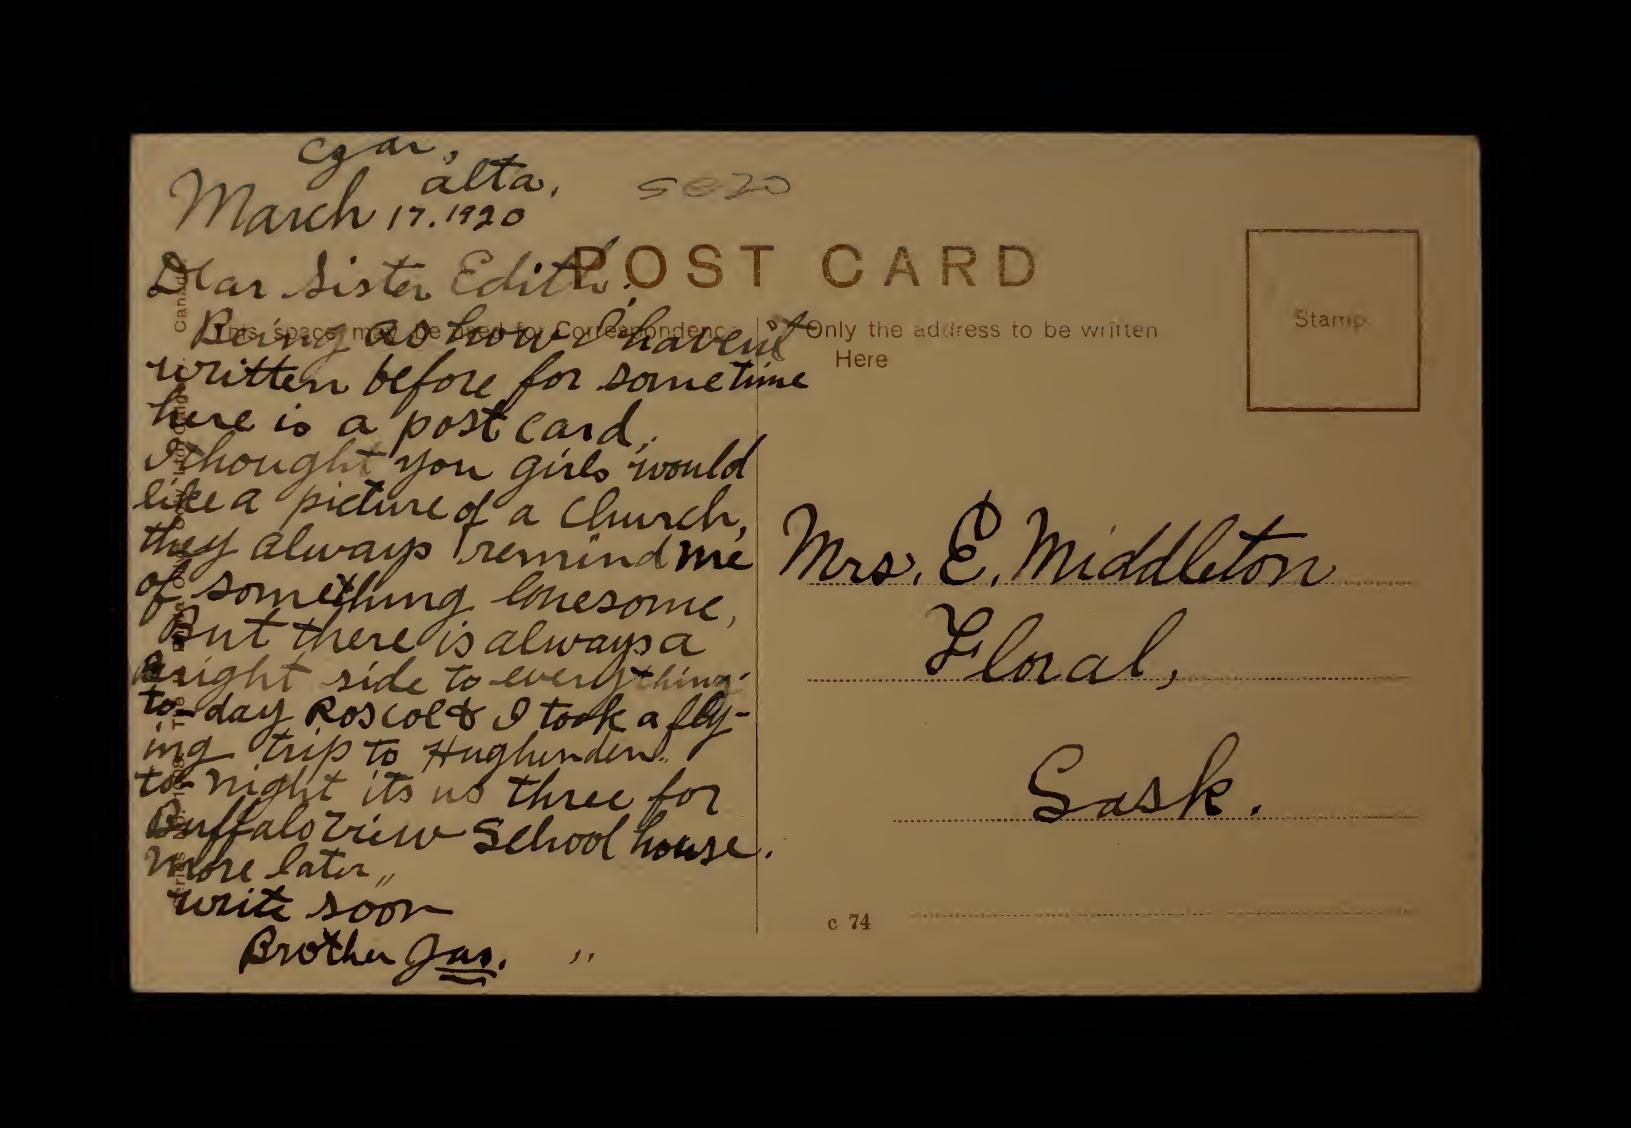 Czar,
Alta,
March 17. 1920
5020
POST CARD
Dear Sister Edith:
This space may be used for Correspondence
Being as how I haven't
written before for sometime
here is a post card.
I thought you girls would
like a picture of a church,
they always remind me
of something lonesome,
But there is always a
Bright side to everything-
to-day Roscoe & I took a fly-
ing trip to Hughenden.
to-night its us three for
Buffalo View School house.
more later,,
write soon
Brother Jas. ,,
Only the address to be written
Here
Stamp
Mrs. E. Middleton
Floral,
Sask.
c 74
Canada